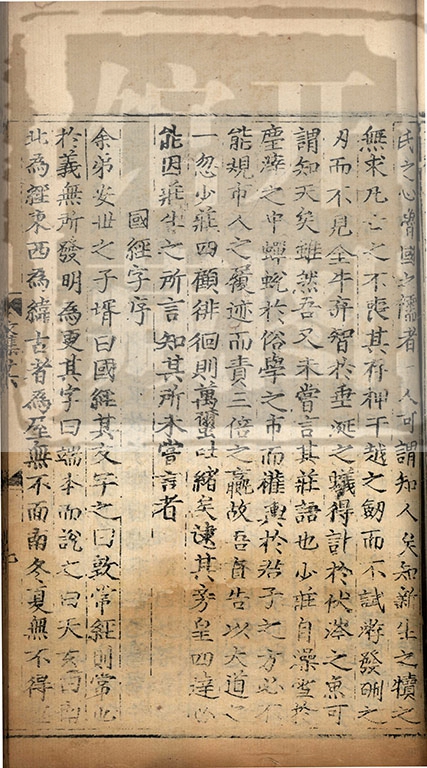 氏之心魯國之儒者一人可謂知人矣知新生之犢之
無求凡亡之不喪其存神干越之劒而不試游發硎之
刃而不見全牛弃智於垂涎之蟻得計於伏涔之魚可
謂知天矣雖然吾又未嘗言其莊語也少莊自澡雪於
塵滓之中蟬蛻於俗學之市而權輿於君子之方必不
能規市人之履迹而責三倍之贏故吾頁告以大道之
一忽少莊四顧徘徊則萬蠒吐緒矣逮其旁皇四達必
能因莊生之所言知其所未嘗言者
國經字序
余弟安世之子壻曰國經其友字之曰敦常經則常也
於義無所發明為更其字曰端本而說之曰天文南
北為經東西為緯古者為屋無不面南冬夏無不得